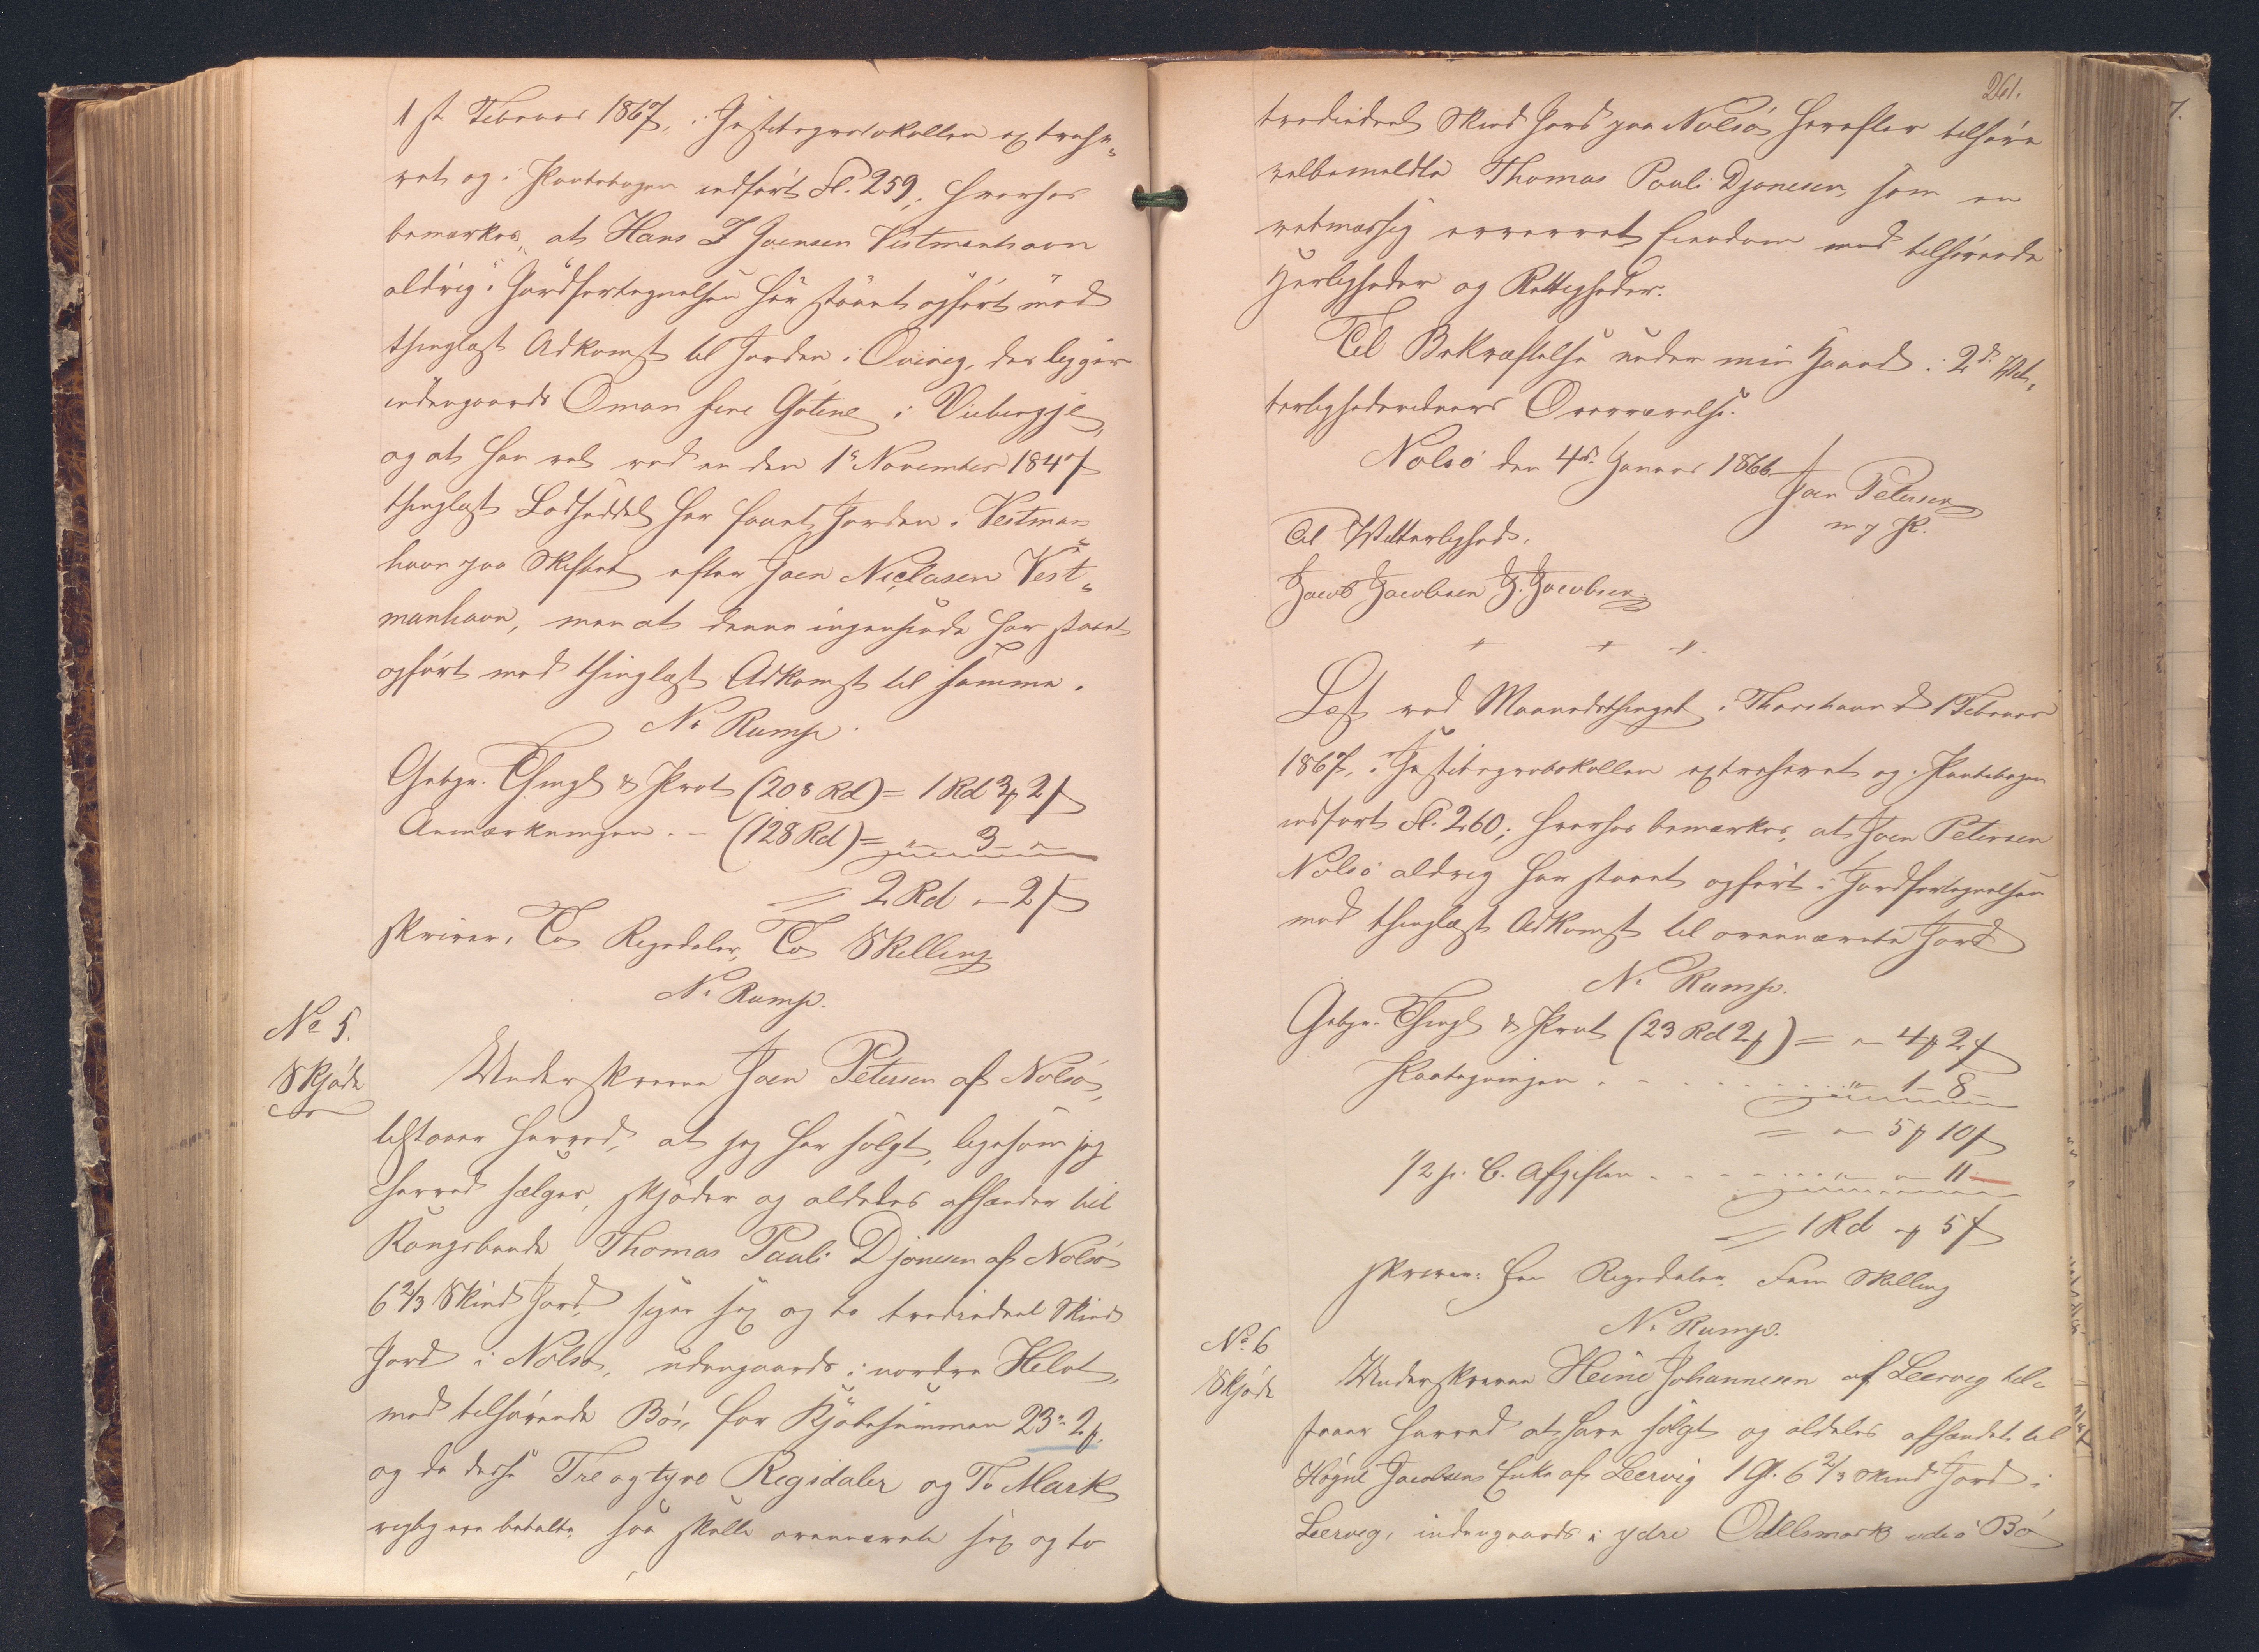 1ste Februar 1867, i Justitsprotokollen extrahe„
ret og i Pantebogen indført Fl. 259; hvorhos
bemærkes, at Hans J Joensen Vestmanhavn
aldrig i Jordfortegnelsen har staaet opført med
thinglæst Adkomst til Jorden i Qvivig, der ligger
indengaards Oman fire Gotine i Viebergje,
og at han vel ved en den 1ste November 1847
thinglæst Lodseddel har faaet Jorden i Vestman„
havn paa Skiftet efter Joen Niclasen Vest„
manhavn, men at denne ingensinde har staaet
opført med thinglæst Adkomst til samme.
N. Rump.
Gebyr. Thingl & Prot (208 Rd) = 1 Rd 3 ꝟ 2 ß
Anmærkningen . – (128 Rd) = „ – 3 – „
= 2 Rd – 2 ß
skriver, To Rigsdaler, To Skilling
N. Rump.
No 5.
Skjøde
Underskrevne Joen Petersen af Nolsø,
tilstaaer herved, at jeg har solgt, ligesom jeg
herved sælger, skjøder og aldeles afhænder til
Kongsbonde Thomas Pauli Djonesen af Nolsø
6 2/3 Skind Jord, siger sex og to trediedeel Skind
Jord i Nolsø, udengaards i nordre Helvt,
med tilhørende Bøi, for Kjøbesummen 23 „ 2 ꝟ.
og da disse Tre og tyve Rigsdaler og To Mark
rigtig ere betalte, saa skulle ovennævnte sex og to
261.
trediedeel Skind Jord paa Nolsø herefter tilhøre
velbemeldte Thomas Pauli Djonesen, som en
retmæssig erhvervet Eiendom med tilhørende
Herligheder og Rettigheder.
Til Bekræftelse under min Haand i 2de Vit„
terlighedsvidners Overværelse.
Nolsø den 4de Januar 1866
Joen Petersen
m p P.
Til Vitterlighed,
Jacob Jacobsen J. Jacobsen.
+ + +.
Læst ved Maanedsthinget i Thorshavn d 1 Februar
1867, i Justitsprotokollen extraheret og i Pantebogen
indført Fl. 260; hvorhos bemærkes, at Joen Petersen
Nolsø aldrig har staaet opført i Jordfortegnelsen
med thinglæst Adkomst til ovennævnte Jord
N. Rump.
Gebyr. Thingl & Prot (23 Rd 2 ꝟ) = „ 4 ꝟ 2 ß
Paategningen . . . . „ 1 – 8
= „ 5 ꝟ 10 ß
1/2 p. C. Afgiften . . . . „ – „ 11
= 1 Rd „ ꝟ 5 ß
skriver: Een Rigsdaler Fem Skilling
N. Rump.
No 6
Skjøde
Underskrevne Heine Johannesen af Leervig til„
staaer herved at have solgt og aldeles afhændet til
Høgne Jacobsens Enke af Leervig 1 Gl. 6 2/3 Skind Jord i
Leervig, indengaards i ydre Odelsmark ude i Bø